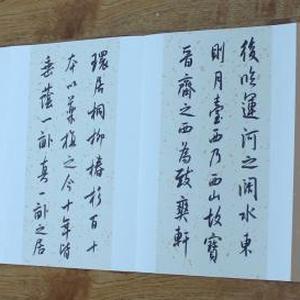 後臨運河之闊水東
則月臺西乃西山故寶
晉齋之西為致爽軒
環居桐柳椿杉百十
本以藥植之今十年皆
垂蔭一畝真一畝之居